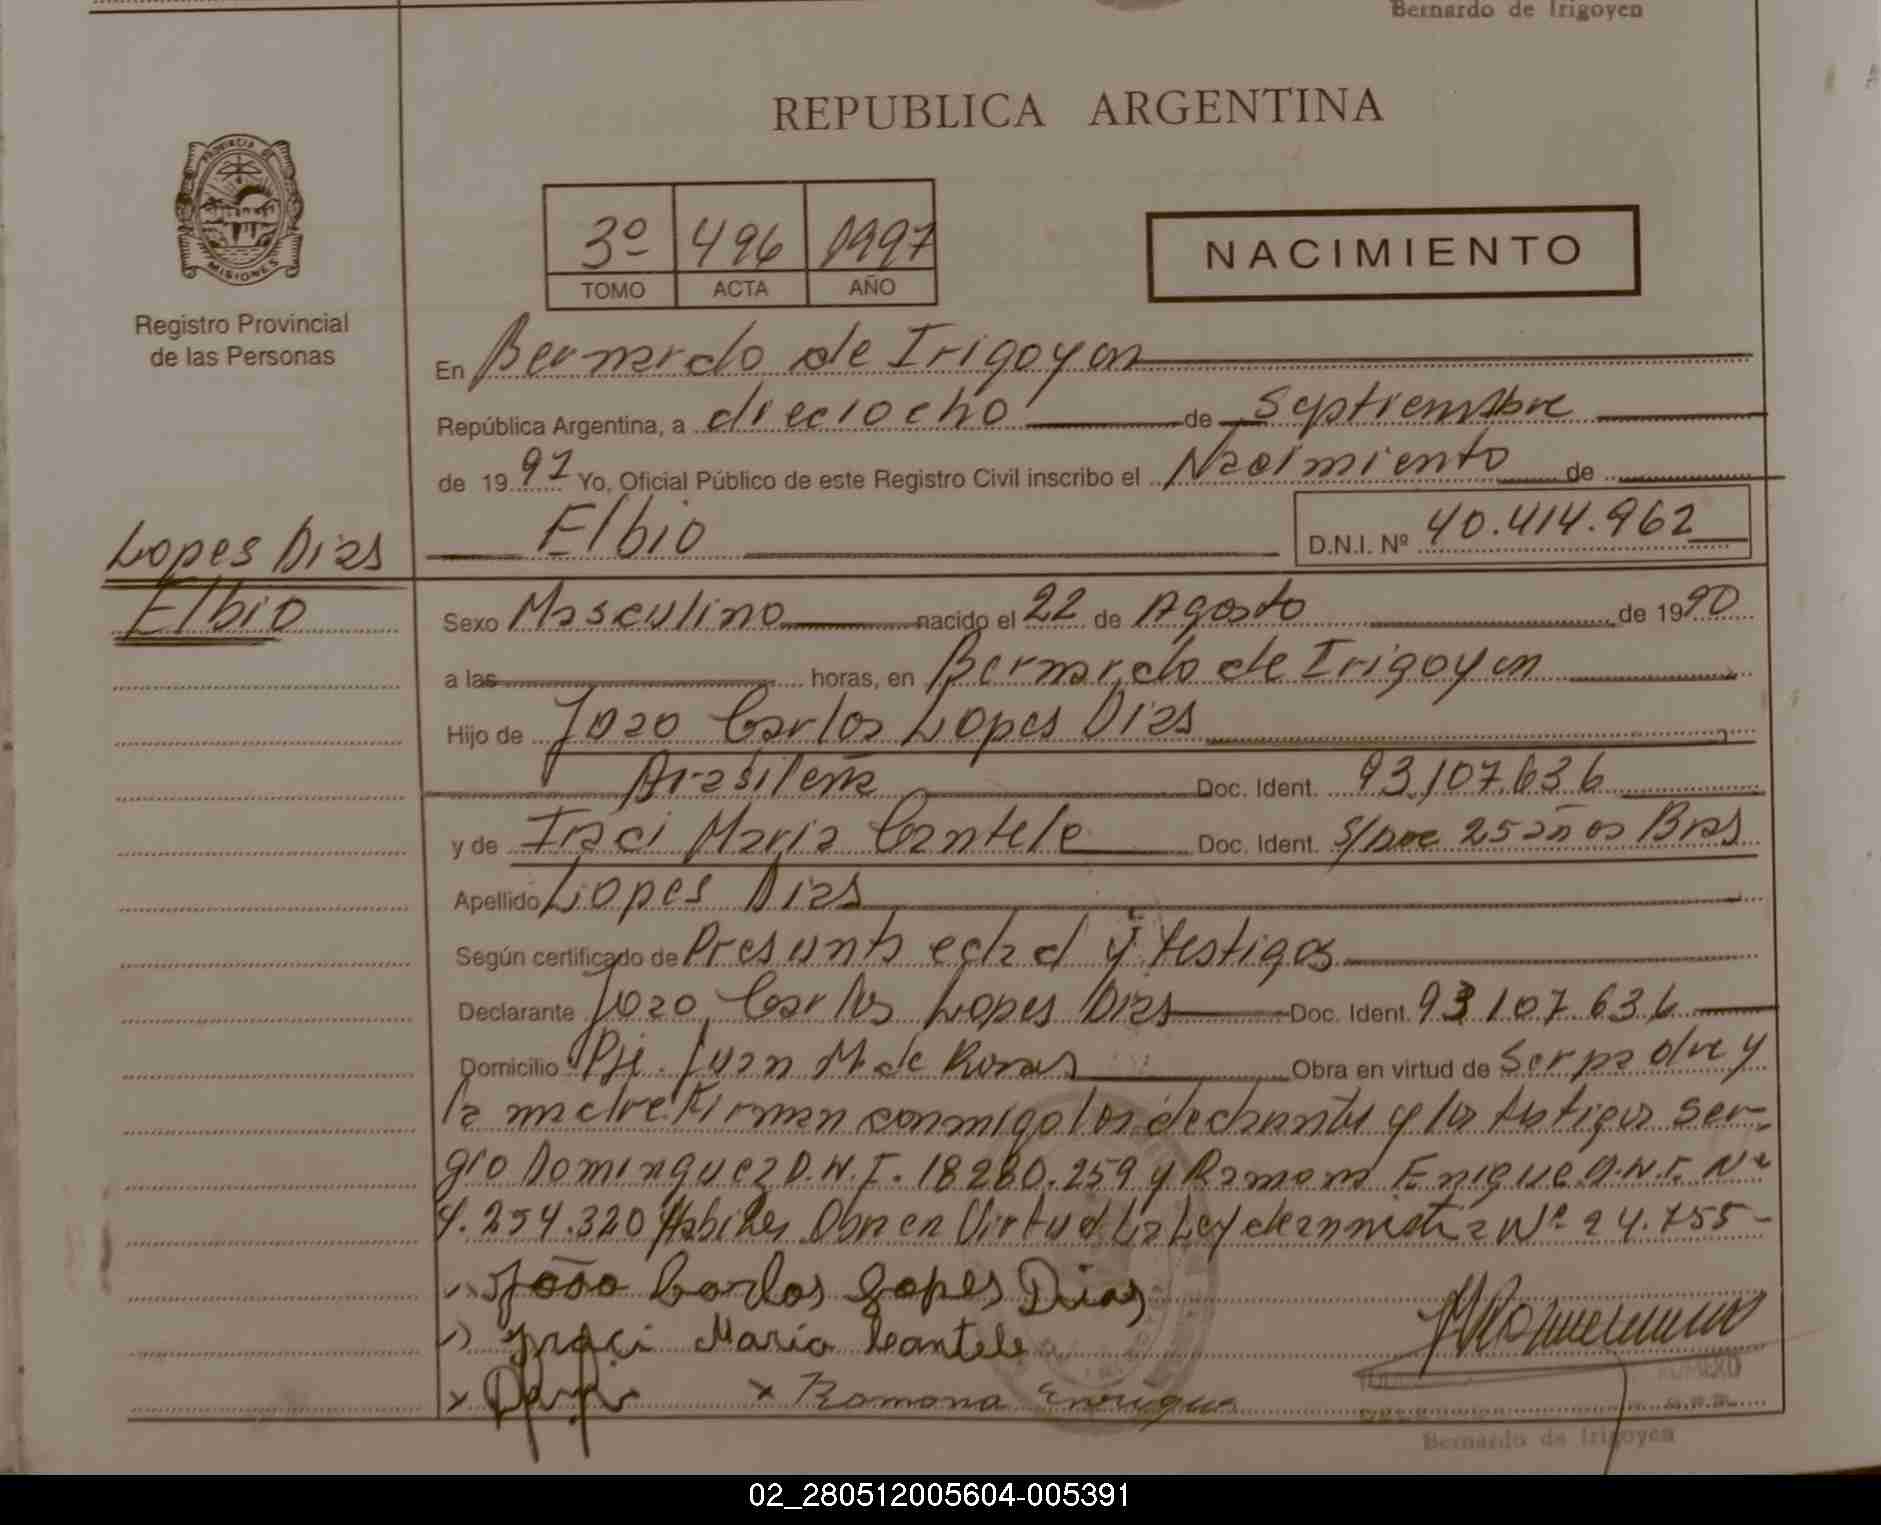 Bernardo de Irigoyen
REPUBLICA ARGENTINA
PROVINCIA DE
MISIONES
Registro Provincial
de las Personas
3º 496 1997
TOMO ACTA AÑO
NACIMIENTO
En Bernardo de Irigoyen
República Argentina, a dieciocho de Septiembre
de 1997 Yo, Oficial Público de este Registro Civil inscribo el Nacimiento de
Elbio D.N.I. Nº 40.414.962
Lopes Dias
Elbio
Sexo Masculino nacido el 22 de Agosto de 1990
a las horas, en Bernardo de Irigoyen
Hijo de Joao Carlos Lopes Dias
Brasileña Doc. Ident. 93.107.636
y de Iraci Maria Cantele Doc. Ident. S/Doc 25 años Bras
Apellido Lopes Dias
Según certificado de Presunta edad y testigos
Declarante Joao Carlos Lopes Dias Doc. Ident. 93107.636
Domicilio Bº Juan M de Rosas Obra en virtud de Ser padre y
la madre Firman conmigo los declarantes y los testigos Ser-
gio Dominguez D.N.I. 18280.259 y Ramona Enrique D.N.I. Nº
4.254.320 Habiles Obra en Virtud La Ley de amnistia Nº 24.755-
João Carlos Lopes Dias
Iraci Maria Cantele
x x Ramona Enrique
Bernardo de Irigoyen
02_280512005604-005391